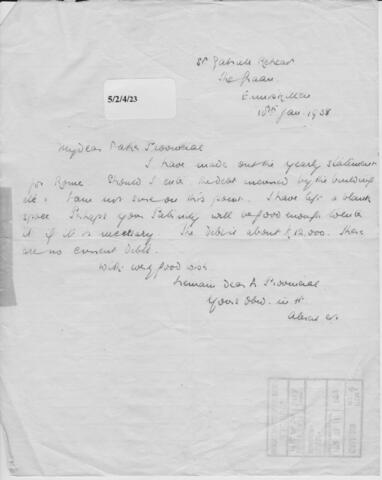 St Gabriels Retreat
The Graan
Enniskillen
18th Jan. 1938
5/2/4/23
My dear Father Provincial
I have made out the yearly statement
for Rome. Should I enter the debt incurred by the building
etc: I am not sure on this point. I have left a blank
space. Perhaps your Paternity will be good enough to enter
it if it is necessary. The Debt is about £12,000. There
are no current Debts.
With very good wish
I remain Dear Fr Provincial
Yours obed. in